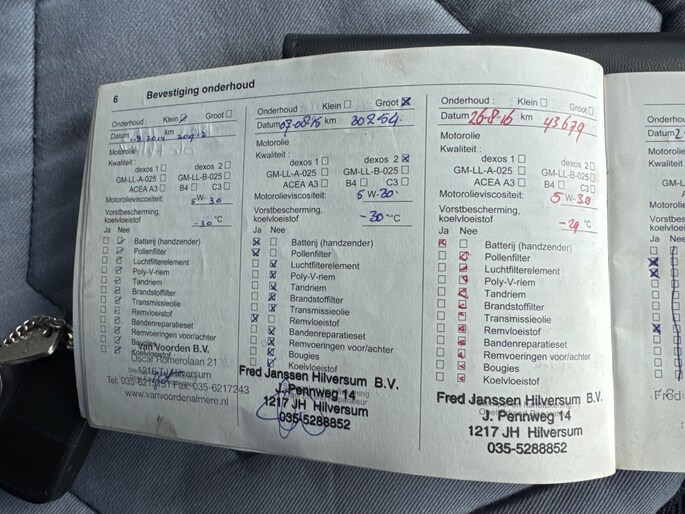 6 Bevestiging onderhoud
Onderhoud : Klein Groot
Datum km
Motorolie
Kwaliteit :
dexos 1
GM-LL-A-025 dexos 2
GM-LL-B-025
ACEA A3 B4 C3
Motorolieviscositeit: 5 W-30
Vorstbescherming,
koelvloeistof -30 °C
Ja Nee
Batterij (handzender)
Pollenfilter
Luchtfilterelement
Poly-V-riem
Tandriem
Brandstoffilter
Transmissieolie
Remvloeistof
Bandenreparatieset
Remvoeringen voor/achter
Bougies
Koelvloeistof
Van Voorden B.V.
Oscar Romerolaan 21
Hilversum
Fax: 035-6217243
www.vanvoordenalmere.nl
Onderhoud : Klein Groot
Datum 07-08-15 km
Motorolie
Kwaliteit :
dexos 1 dexos 2
GM-LL-A-025 GM-LL-B-025
ACEA A3 B4 C3
Motorolieviscositeit: 5 W-30
Vorstbescherming,
koelvloeistof -30 °C
Ja Nee
Batterij (handzender)
Pollenfilter
Luchtfilterelement
Poly-V-riem
Tandriem
Brandstoffilter
Transmissieolie
Remvloeistof
Bandenreparatieset
Remvoeringen voor/achter
Bougies
Koelvloeistof
Fred Janssen Hilversum B.V.
J. Pennweg 14
1217 JH Hilversum
035-5288852
Onderhoud : Klein Groot
Datum 26-8-16 km 43679
Motorolie
Kwaliteit :
dexos 1 dexos 2
GM-LL-A-025 GM-LL-B-025
ACEA A3 B4 C3
Motorolieviscositeit: 5 W-30
Vorstbescherming,
koelvloeistof -29 °C
Ja Nee
Batterij (handzender)
Pollenfilter
Luchtfilterelement
Poly-V-riem
Tandriem
Brandstoffilter
Transmissieolie
Remvloeistof
Bandenreparatieset
Remvoeringen voor/achter
Bougies
Koelvloeistof
Fred Janssen Hilversum B.V.
J. Pennweg 14
1217 JH Hilversum
035-5288852
Datum
Motorolie
Kwaliteit